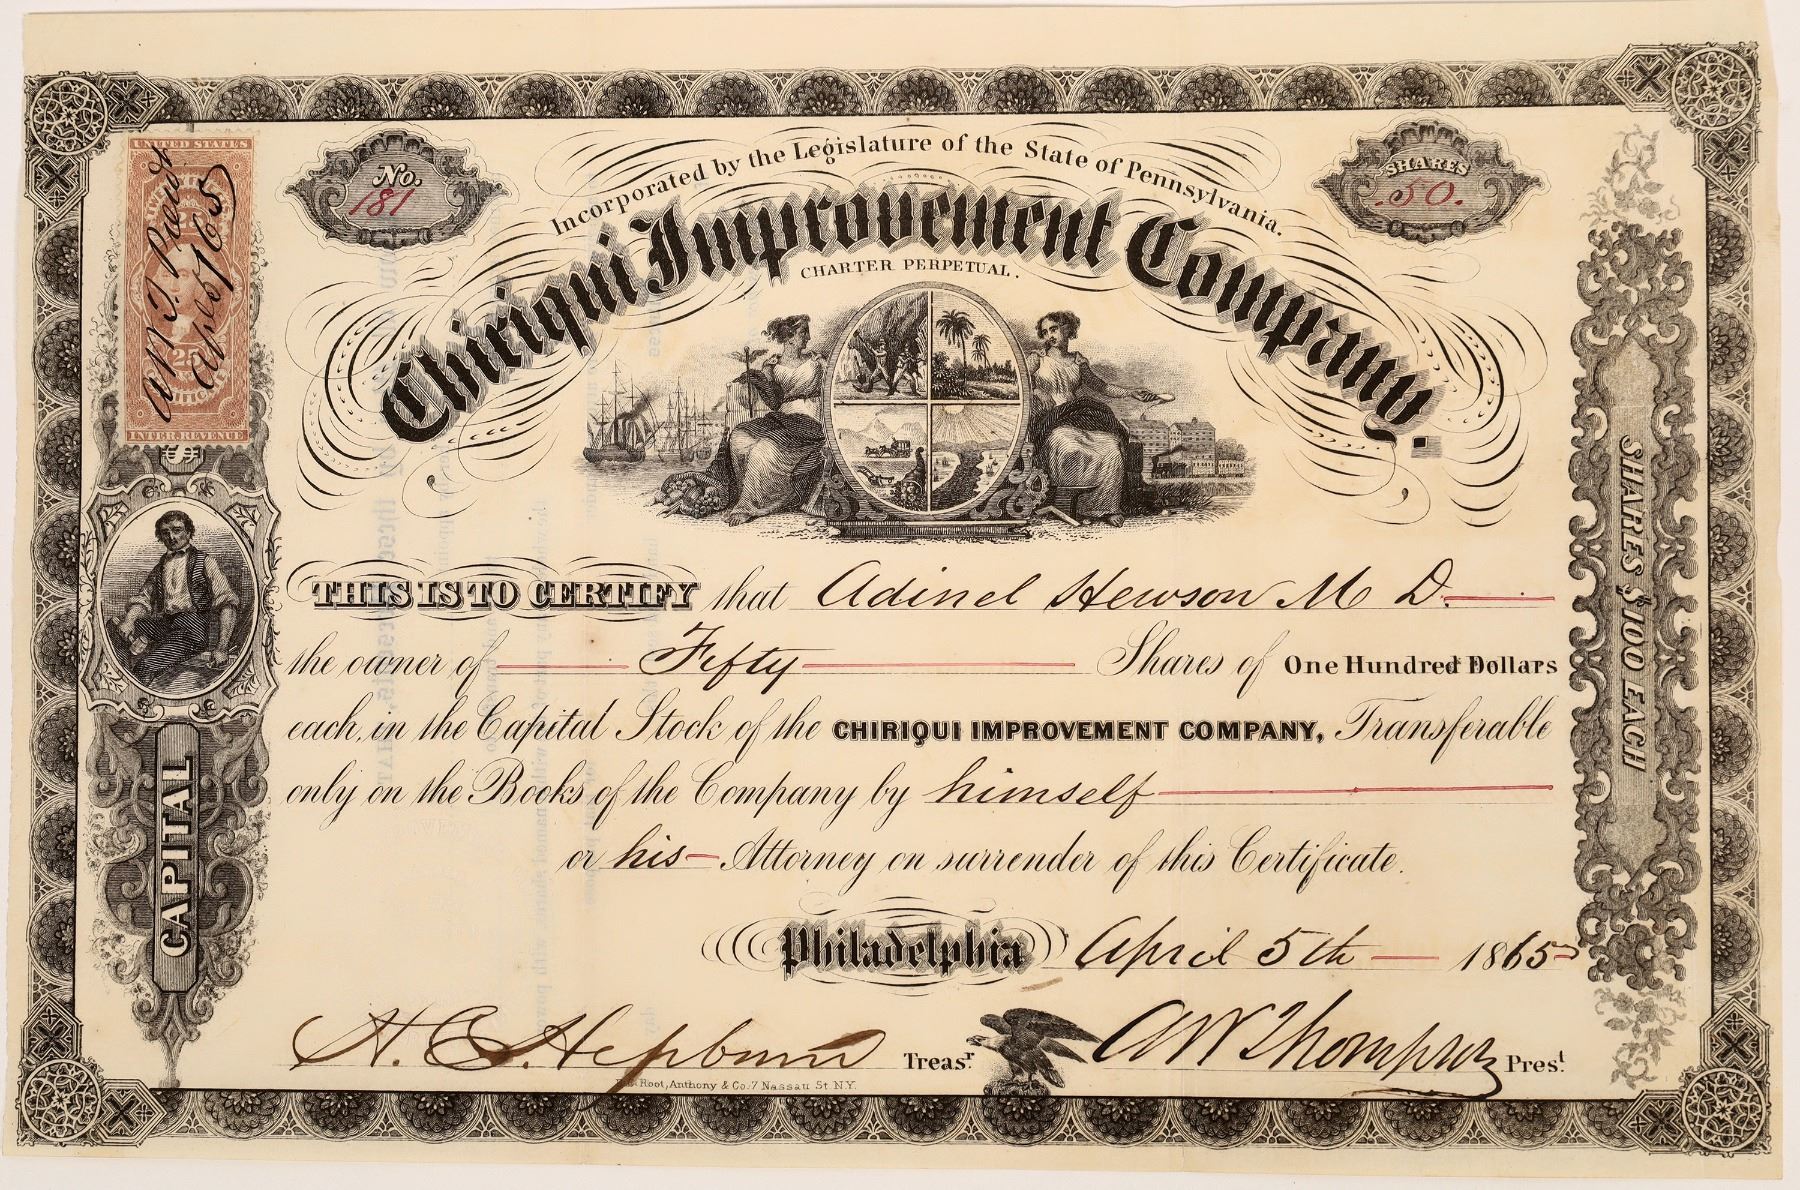 UNITED STATES
25
INTER. REVENUE
April 5/65
No.
181
SHARES
50.
Incorporated by the Legislature of the State of Pennsylvania.
Chiriqui Improvement Company.
CHARTER PERPETUAL.
$
CAPITAL
SHARES $100 EACH
THIS IS TO CERTIFY that Adinel Hewson M D.
the owner of Fifty Shares of One Hundred Dollars
each, in the Capital Stock of the CHIRIQUI IMPROVEMENT COMPANY, Transferable
only on the Books of the Company by himself
or his Attorney on surrender of this Certificate.
Philadelphia April 5th 1865
H. C. Hepburn Treasr.
AW Thompson Prest.
Root, Anthony & Co. 7 Nassau St. N.Y.